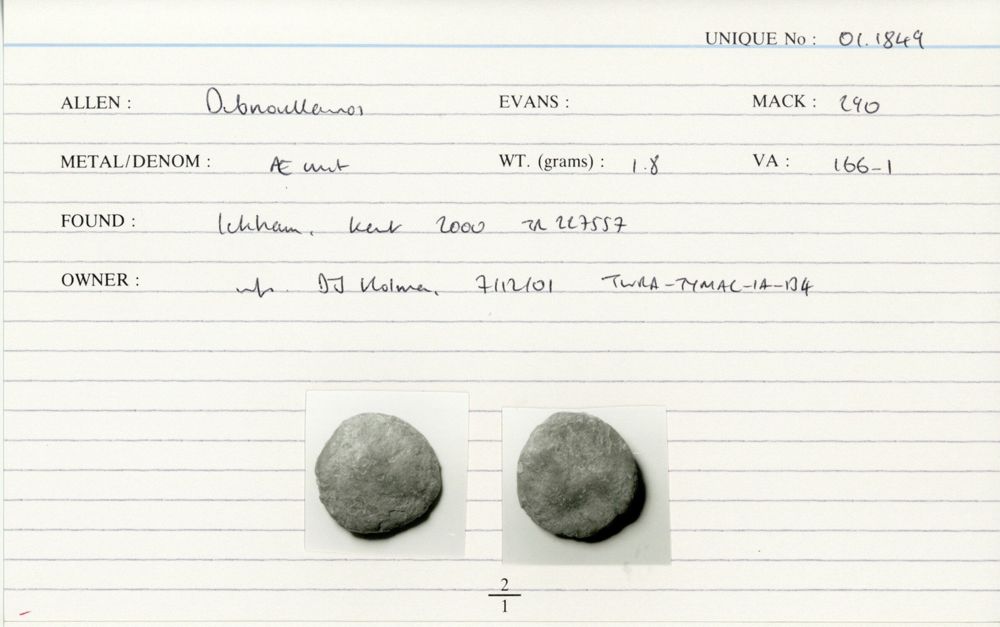 UNIQUE No : 01.1849
ALLEN : Dubnovellaunos EVANS : MACK : 290
METAL/DENOM : Æ unit WT. (grams) : 1.8 VA : 166-1
FOUND : Ickham, Kent 2000 TR 227557
OWNER : DJ Holman, 7/12/01
2
1